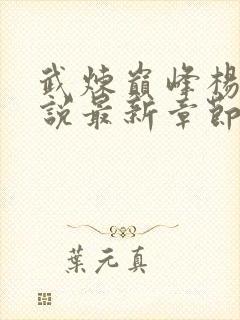 武煉巔峰楊
說最新章節
葉元真